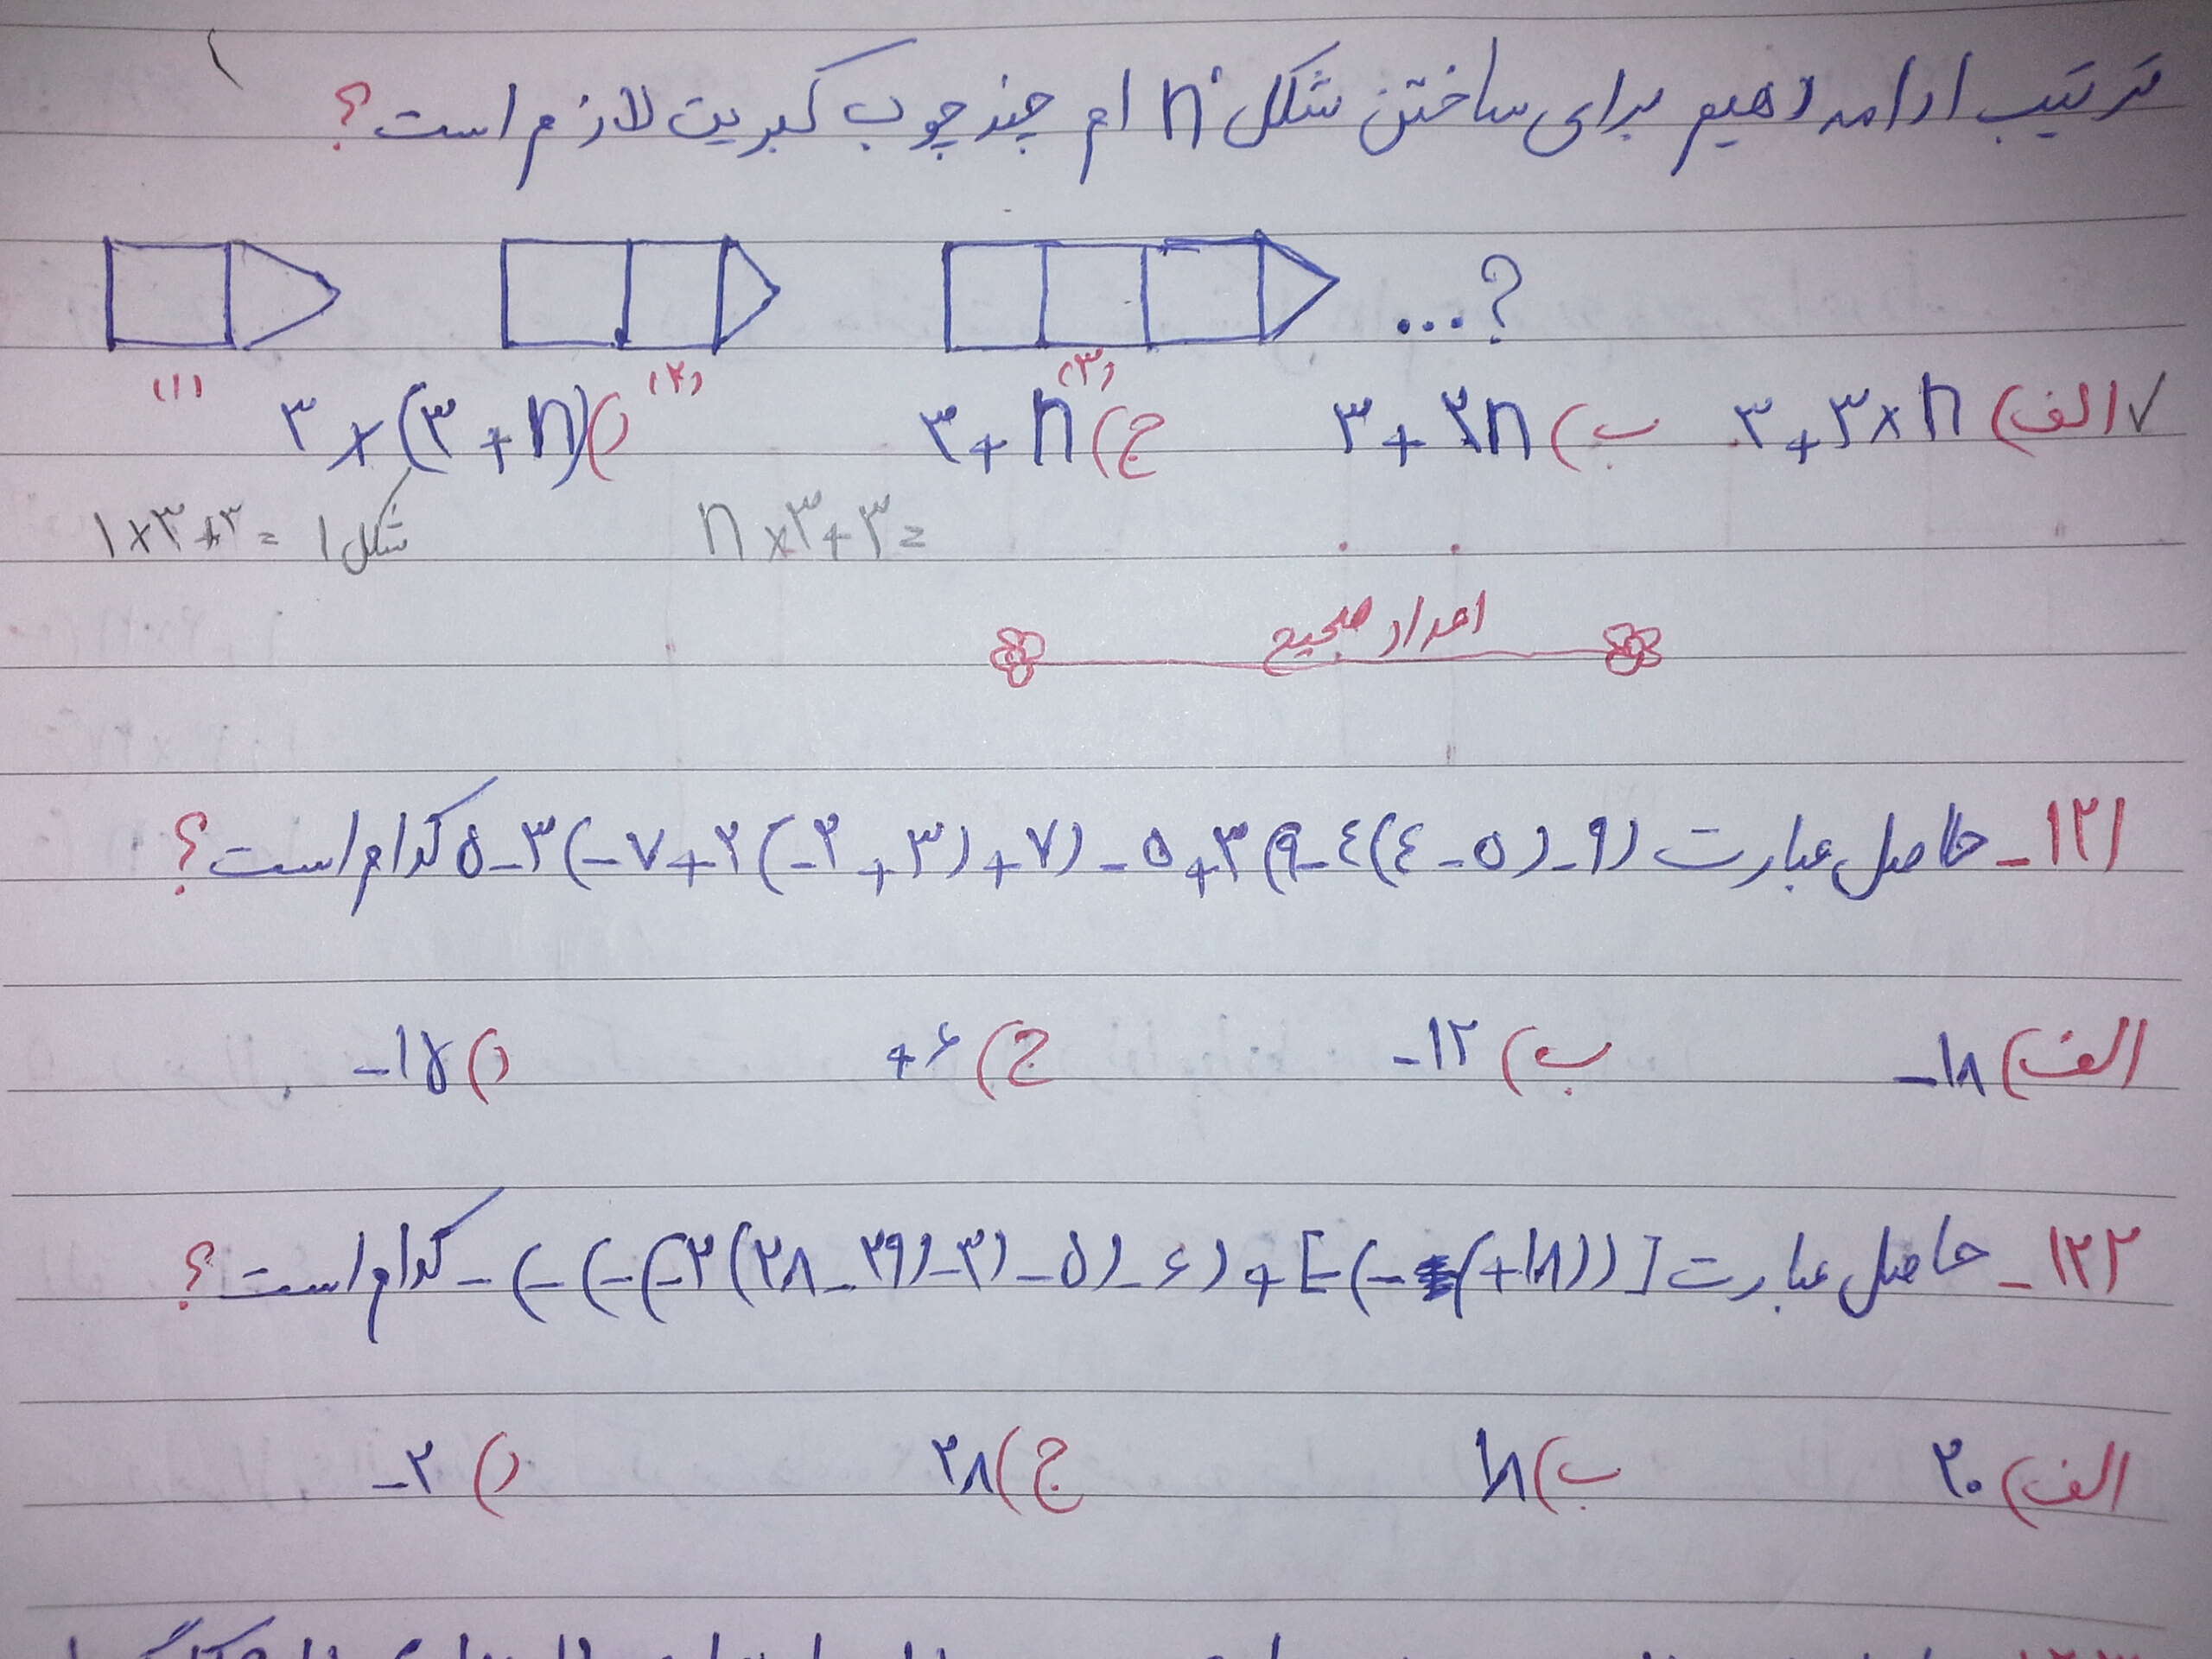 ترتیب ادامه دهیم برای ساختن شکل n ام چند چوب کبریت لازم است؟
... ?
(۱) (۲) (۳)
الف) ۳+۳×n ب) ۳+۲n ج) ۳+n د) ۳×(۳+n)
شکل ۱ = ۱×۳+۳ n×۳+۳=
اعداد صحیح
۱۲۱- حاصل عبارت ۵-۳(-۷+۲(-۲+۳)+۷)-۵+۳(۹-٤(٤-۵)-۹) کدام است؟
الف) -۱۸ ب) -۱۲ ج) +۶ د) -۱۵
۱۲۲- حاصل عبارت -(-(-(-۲(۲۸-۲۹)-۳)-۵)-۶)+[-(-(+۱۸))] کدام است؟
الف) ۲۰ ب) ۱۸ ج) ۲۸ د) -۲